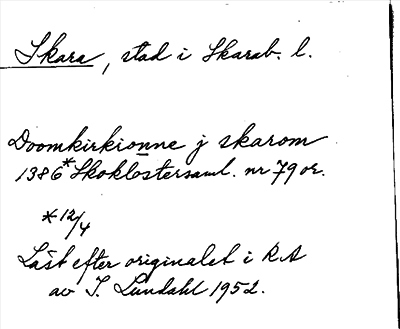 Skara, stad i Skarab. l.
Doomkirkionne j skarom
1386* Skoklostersaml. nr 79 or.
* 12/4
Läst efter originalet i RA
av I. Lundahl 1952.